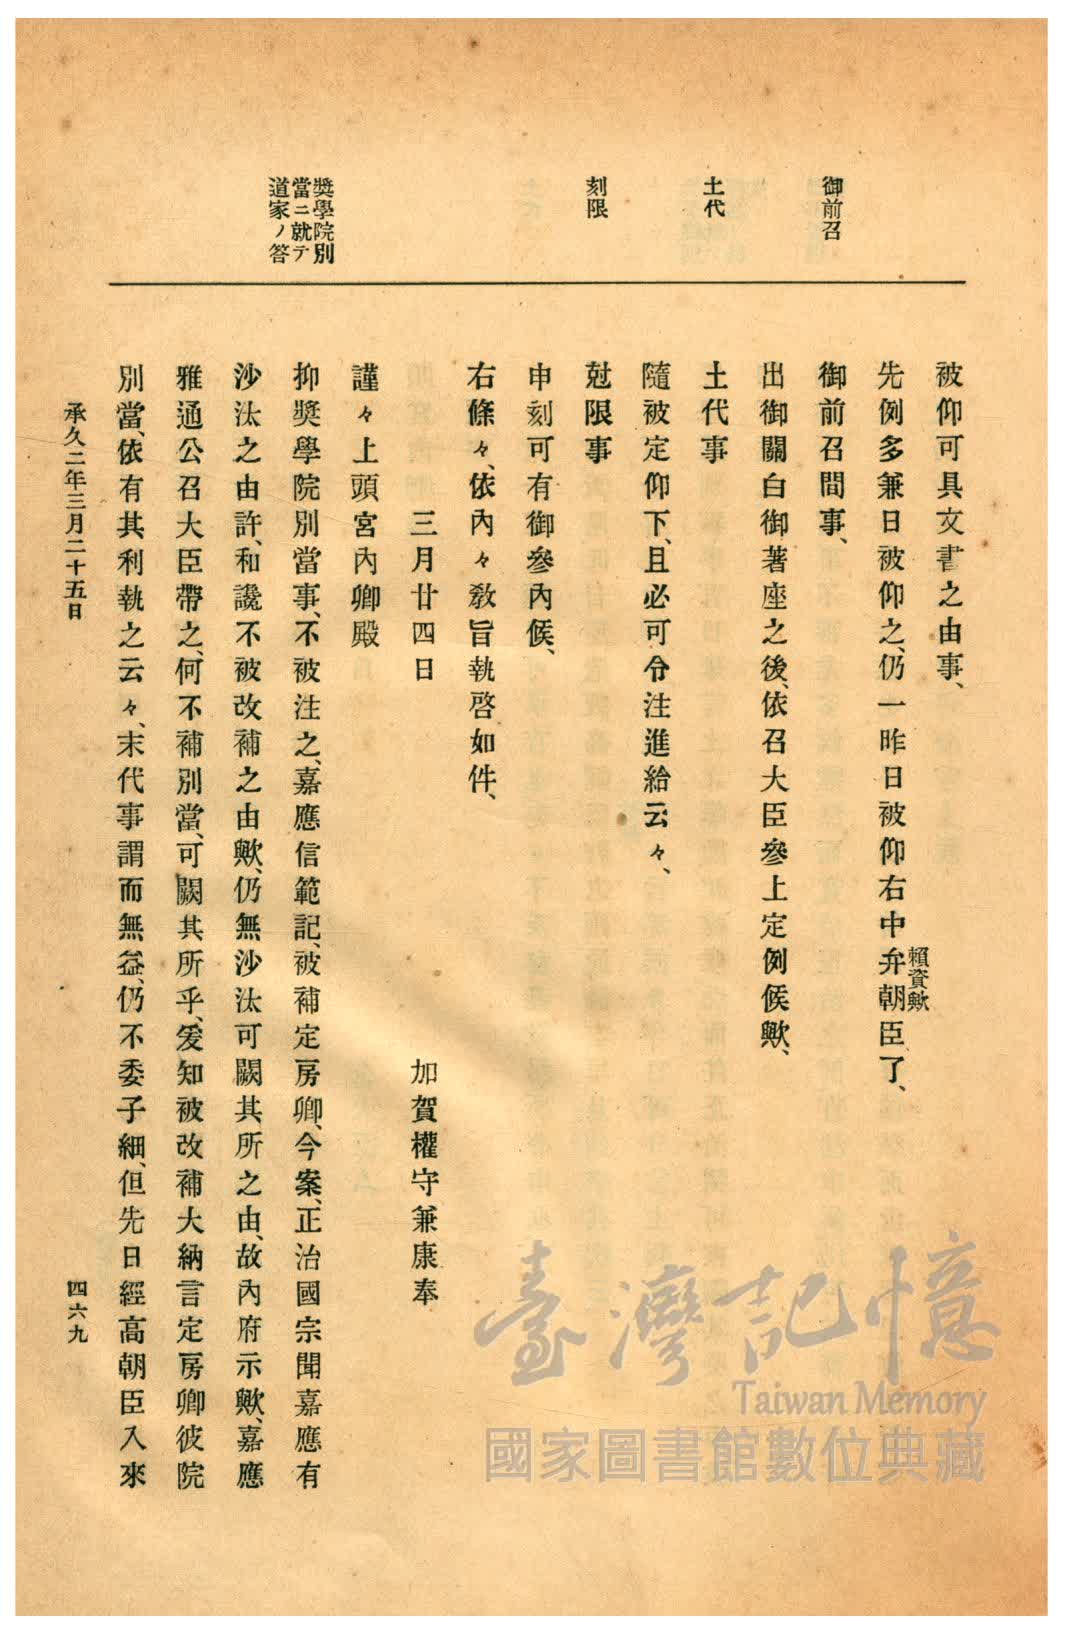 御前召
土代
刻限
奬學院別
當ニ就テ
道家ノ答
被仰可具文書之由事、
先例多兼日被仰之、仍一昨日被仰右中弁朝臣了、
賴資歟
御前召間事、
出御關白御著座之後、依召大臣參上定例候歟、
土代事
隨被定仰下、且必可令注進給云々、
尅限事
申刻可有御參內候、
右條々、依內々敎旨執啓如件、
三月廿四日
加賀權守兼康奉
謹々上頭宮內卿殿
抑奬學院別當事、不被注之、嘉應信範記、被補定房卿、今案、正治國宗聞嘉應有
沙汰之由許、和讒不被改補之由歟、仍無沙汰可闕其所之由、故內府示歟、嘉應
雅通公召大臣帶之、何不補別當、可闕其所乎、爰知被改補大納言定房卿彼院
別當、依有其利執之云々、末代事謂而無益、仍不委子細、但先日經高朝臣入來
承久二年三月二十五日
四六九
臺灣記憶
Taiwan Memory
國家圖書館數位典藏